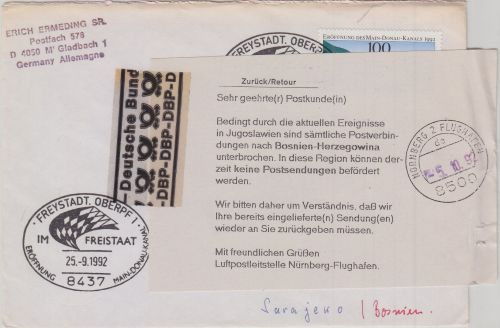 ERICH ERMEDING SR.
Postfach 576
D 4050 M'Gladbach 1
Germany Allemagne
FREYSTADT, OBERPF
ERÖFFNUNG DES MAIN-DONAU-KANALS 1992
100
Deutsche Bund
DBP-DBP-DBP-D
Zurück/Retour
Sehr geehrte(r) Postkunde(in)
Bedingt durch die aktuellen Ereignisse
in Jugoslawien sind sämtliche Postverbin-
dungen nach Bosnien-Herzegowina
unterbrochen. In diese Region können der-
zeit keine Postsendungen befördert
werden.
Wir bitten daher um Verständnis, daß wir
Ihre bereits eingelieferte(n) Sendung(en)
wieder an Sie zurückgeben müssen.
Mit freundlichen Grüßen
Luftpostleitstelle Nürnberg-Flughafen.
NÜRNBERG 2 FLUGHAFEN
8500
FREYSTADT, OBERPF 1
IM FREISTAAT
25.-9.1992
ERÖFFNUNG MAIN-DONAU-KANAL
8437
Sarajevo / Bosnien.